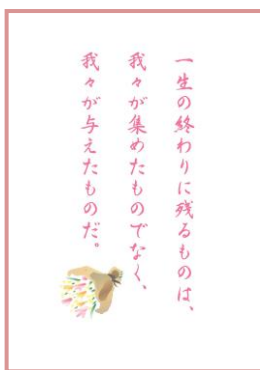 一生の終わりに残るものは、
我々が集めたものでなく、
我々が与えたものだ。